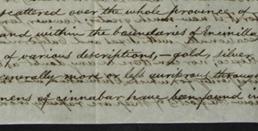 scattered over the whole province of
and within the boundaries of
of various descriptions, — gold, silver,
generally more or less through
of cinnabar have been found in